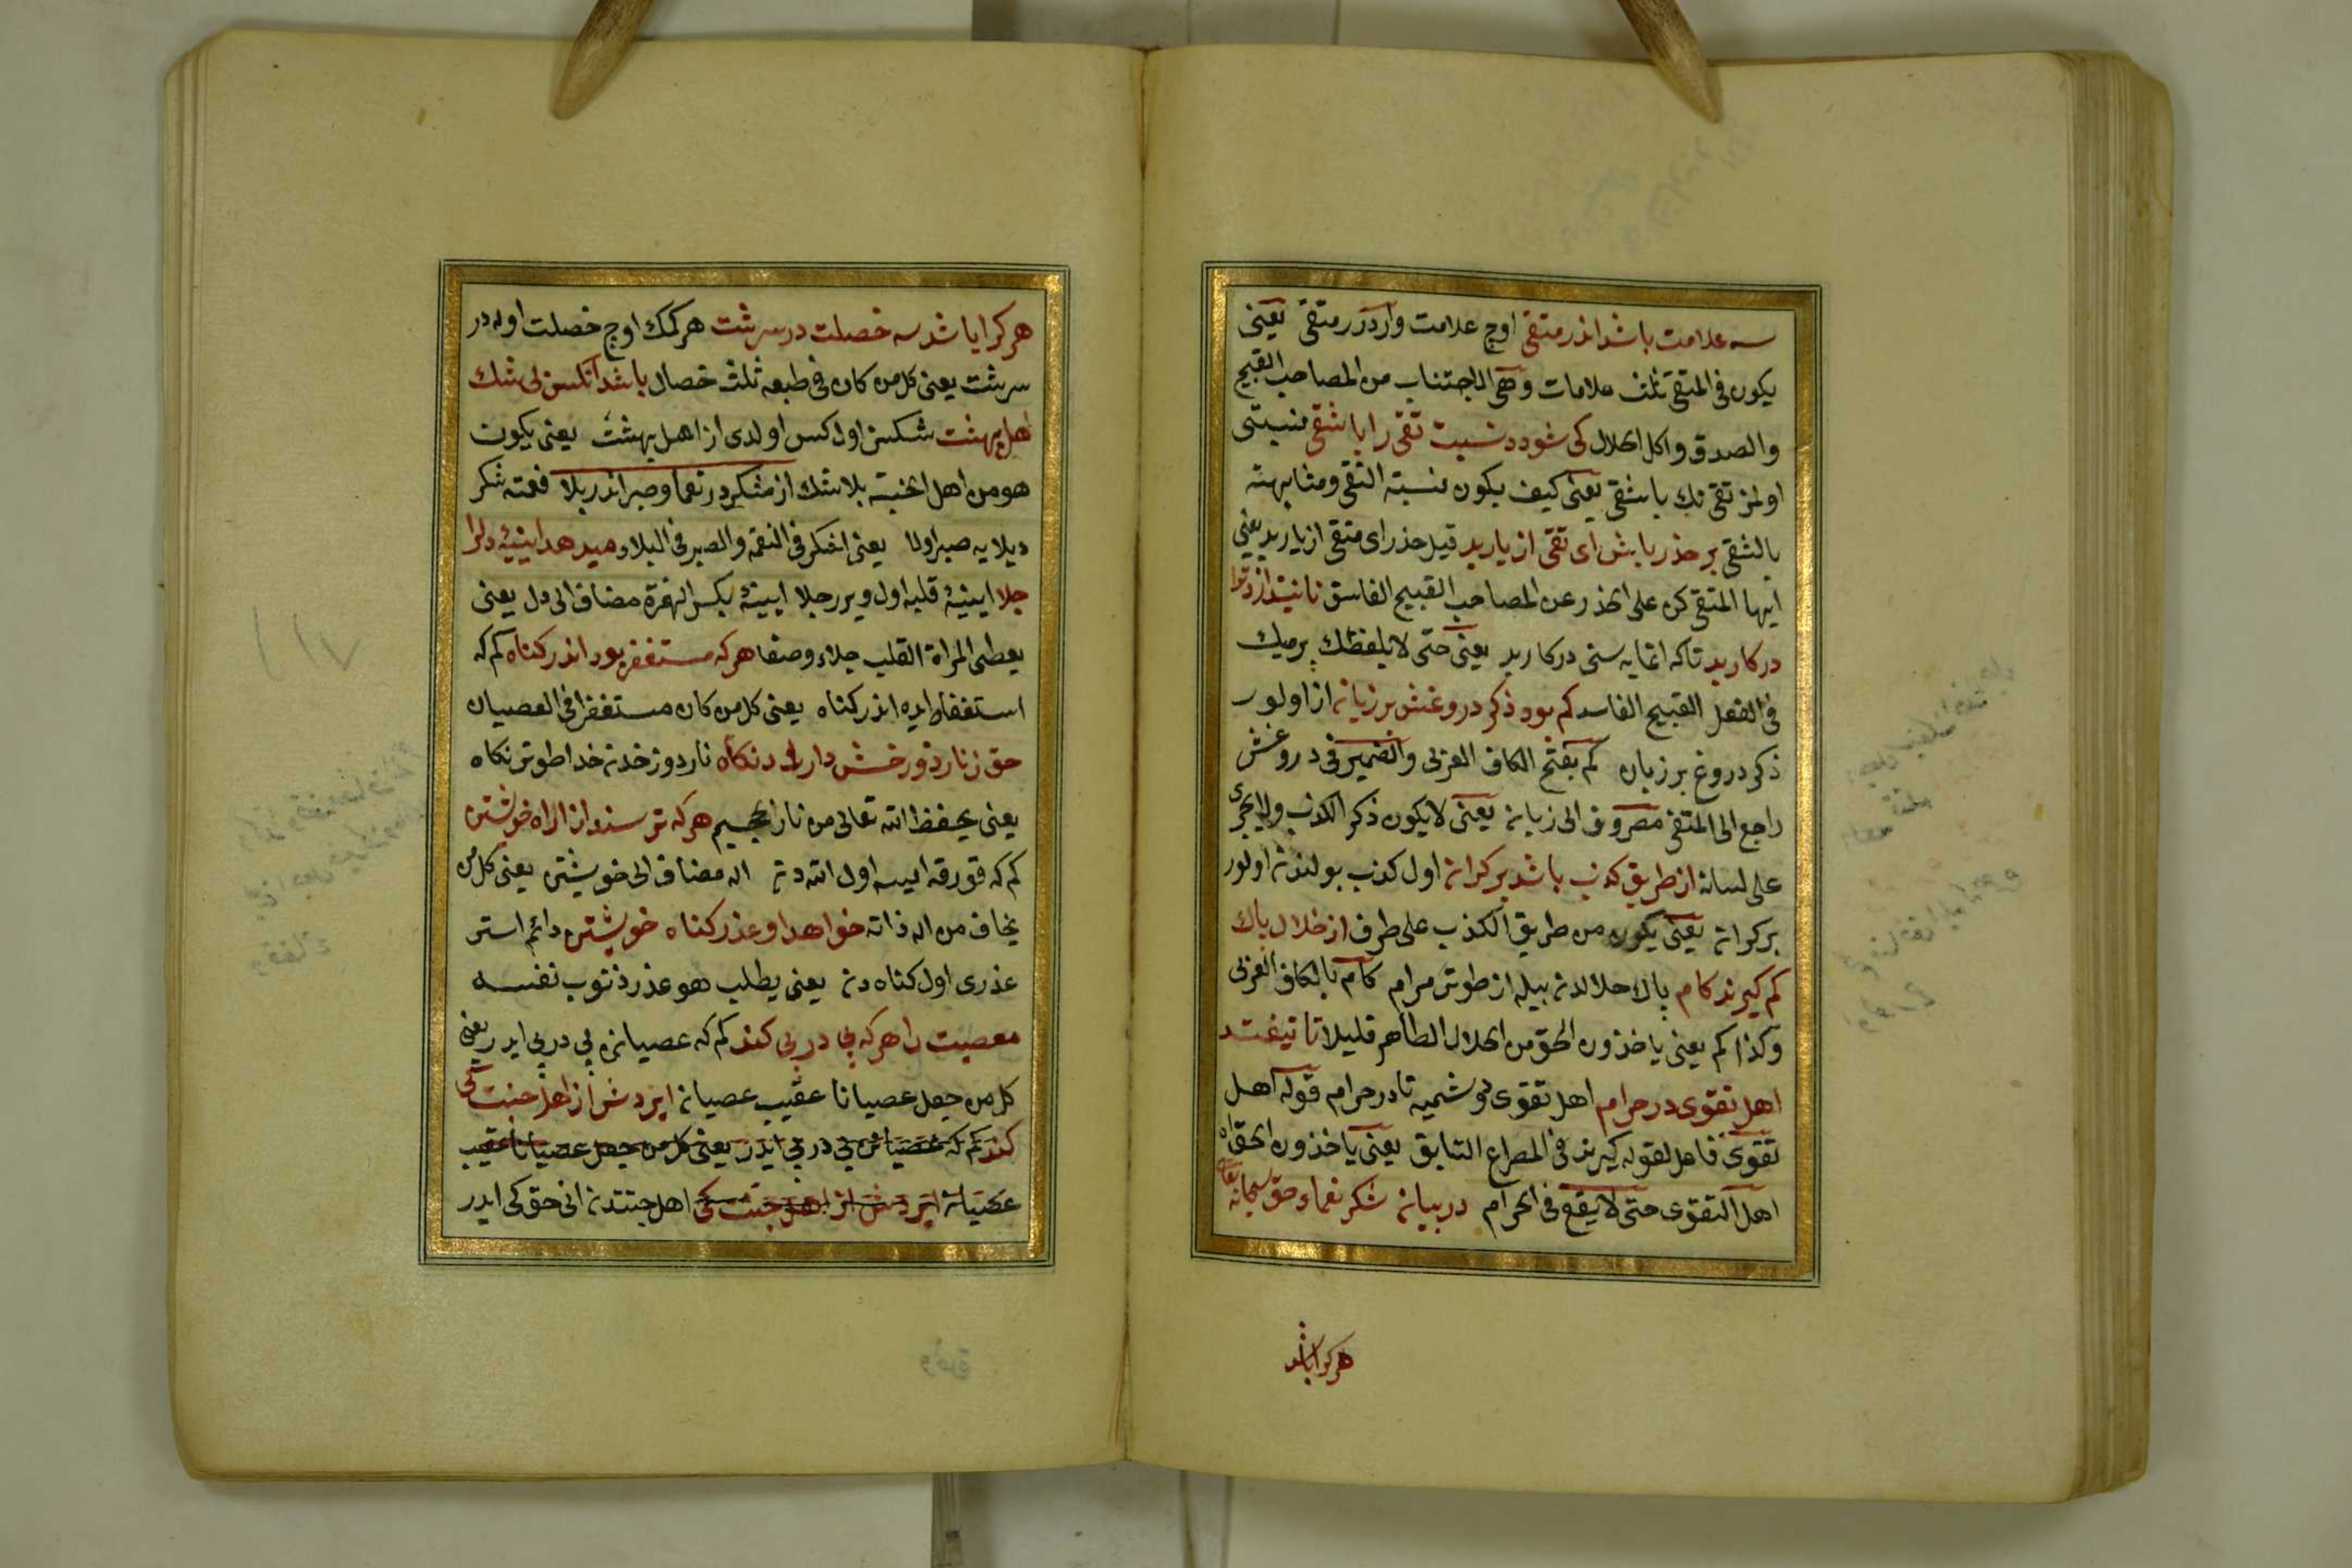 سه علامت باشد اندر متقی اوج علامت واردر متقی یعنی
یکون فی المتقی ثلث علامات وهی الاجتناب من المصاحب القبیح
والصدق واکل الحلال کی شود نسبت تقی را با شقی نسبتی
اولمز تقی نك با شقی یعنی کیف یکون نسبته التقی ومشابهته
بالشقی بر حذر باش ای تقی از یار بد قیل حذر ای متقی از یار بد یعنی
ایها المتقی کن علی الحذر عن المصاحب القبیح الفاسق تا نیندازد ترا
در کار بد تاکه اتمایه سنی در کار بد یعنی حتی لا یلفظك یرمیك
فی الفعل القبیح الفاسد کم بود ذکر دروغش بر زبانه از اولور
ذکر دروغ بر زبان کم بفتح الکاف العربی والضمیر فی دروغش
راجع الی المتقی مصروف الی زبانه یعنی لا یکون ذکر الکذب ولا یجری
علی لسانه از طریق کذب باشد بر کرانه اول کذب یولندنه اولور
بر کرانه یعنی یکون من طریق الکذب علی طرف از حلال پاك
کم کیرند کام پاك حلالدنه بیله از طوتر مرام کام بالکاف العربی
وکذا کم یعنی یاخذون الحق من الحلال الطاهر قلیلا تا نیفتد
اهل تقوی در حرام اهل تقوی دوشمیه تا در حرام قوله اهل
تقوی فاعل لقوله کیرند فی المصراع السابق یعنی یاخذون الحق اه
اهل التقوی حتی لا یقع فی الحرام در بیانه شکر نعماء حق سبحانه تعالی
هر کرا باشد
هر کرا باشد سه خصلت در سرشت هر کمك اوج خصلت اوله در
سرشت یعنی کل من کان فی طبعه ثلث خصال باشد آنکس بی شك
اهل بهشت شکسز اول کس اولدی از اهل بهشت یعنی یکون
هو من اهل الجنته بلا شك از مشکر در نعما وصبر اندر بلا نعمته شکر
دیلایه صبر اولا یعنی الشکر فی النقمه والصبر فی البلاء میدهد ایینهٔ دلرا
جلا ایینهٔ قلبه اول ویرر جلا ایینهٔ بکسر الهمزة مضاف الی دل یعنی
یعطی المراة القلب جلاء وصفا هر که مستغفر بود اندر کناه کم که
استغفار ایده اندر کناه یعنی کل من کان مستغفرا فی العصیان
حق ز نار دوزخش دارد نکاه نار دوزخدنه خدا طوتر نکاه
یعنی یحفظ الله تعالی من نار الجحیم هر که ترسند از اله خویشتن
کم که قورقه ایسه اول اللهدنه اله مضاف الی خویشتن یعنی کل من
یخاف من اله ذاته خواهد او عذر کناه خویشتن دائم استر
عذری اول کناهدنه یعنی یطلب هو عذر ذنوب نفسه
معصیت را هر که پی در پی کند کم که عصیانی پی در پی ایدر یعنی
کل من جعل عصیانا عقیب عصیانه ایزدش از اهل جنت کی
کند کم که عصیانی پی در پی ایدر یعنی کل من جعل عصیانا عقیب
عصیانه ایزدش از اهل جنت کی اهل جنتدنه انی حق کی ایدر